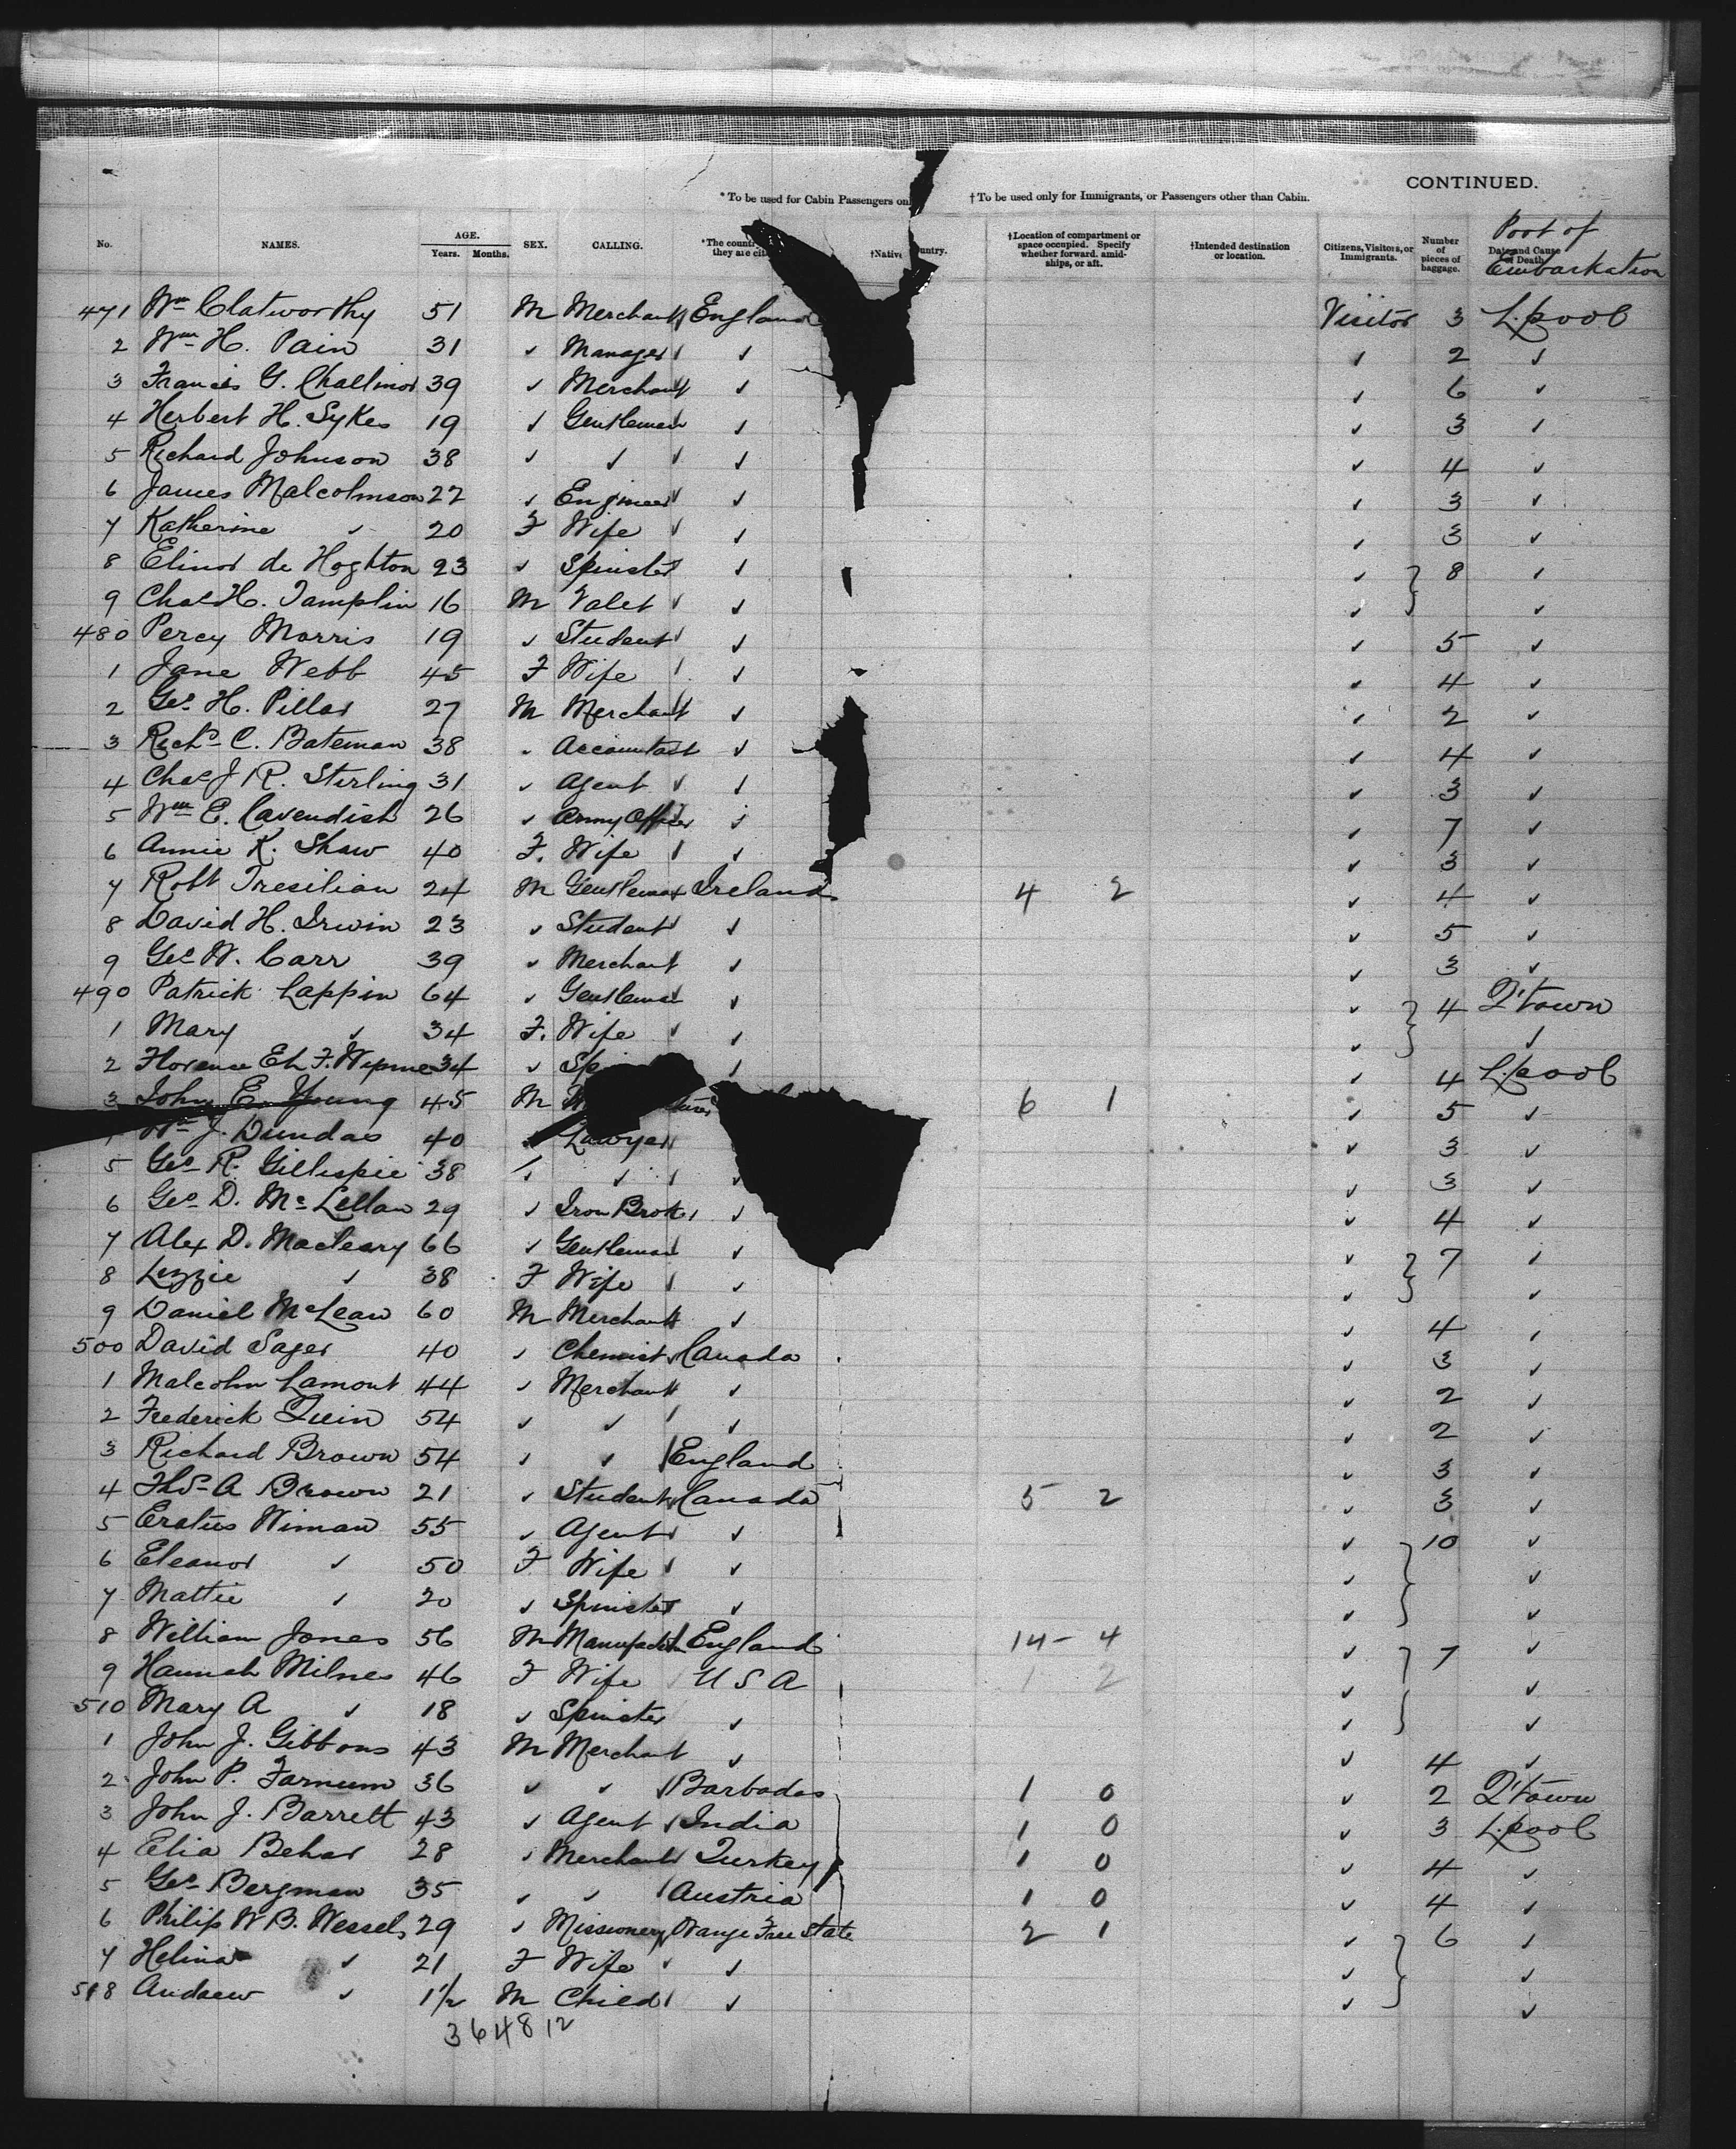 CONTINUED.
* To be used for Cabin Passengers on
† To be used only for Immigrants, or Passengers other than Cabin.
No. NAMES. AGE. Years. Months. SEX. CALLING. *The countr they are cit †Native untry. †Location of compartment or space occupied. Specify whether forward. amid-ships, or aft. †Intended destination or location. Citizens, Visitors, or Immigrants. Number of pieces of baggage. Date and Cause of Death Port of Embarkation
471 Wm Clatworthy 51 M Merchant England Visitor 3 L.pool
2 Wm H. Pain 31 ✓ Manager ✓ ✓ 2 ✓
3 Francis G. Challinor 39 ✓ Merchant ✓ ✓ 6 ✓
4 Herbert H. Sykes 19 ✓ Gentleman ✓ ✓ 3 ✓
5 Richard Johnson 38 ✓ ✓ ✓ ✓ 4 ✓
6 James Malcolmson 22 ✓ Engineer ✓ ✓ 3 ✓
7 Katherine ✓ 20 F Wife ✓ ✓ 3 ✓
8 Elinor de Hoghton 23 ✓ Spinster ✓ ✓ 8 ✓
9 Chas H. Tamplin 16 M Valet ✓ ✓ ✓
480 Percy Morris 19 ✓ Student ✓ ✓ 5 ✓
1 Jane Webb 45 F Wife ✓ ✓ 4 ✓
2 Geo H. Pillar 27 M Merchant ✓ ✓ 2 ✓
3 Richd C. Bateman 38 ✓ Accountant ✓ ✓ 4 ✓
4 Chas J R. Sterling 31 ✓ Agent ✓ ✓ 3 ✓
5 Wm E. Cavendish 26 ✓ Army Officer ✓ ✓ 7 ✓
6 Annie K. Shaw 40 F. Wife ✓ ✓ 3 ✓
7 Robt Tresilian 24 M Gentleman Ireland 4 2 ✓ 4 ✓
8 David H. Irwin 23 ✓ Student ✓ ✓ 5 ✓
9 Geo W. Carr 39 ✓ Merchant ✓ ✓ 3 ✓
490 Patrick Lappin 64 ✓ Gentleman ✓ ✓ 4 Q'town
1 Mary ✓ 34 F. Wife ✓ ✓ ✓
2 Florence 34 ✓ ✓ ✓ 4 L.pool
3 John E. Young 45 M 6 1 ✓ 5 ✓
Wm J. Dundas 40 Lawyer ✓ 3 ✓
5 Geo R. Gillespie 38 ✓ ✓ ✓ ✓ 3 ✓
6 Geo D. McLellan 29 ✓ Iron Brok ✓ ✓ 4 ✓
7 Alex D. Macleary 66 ✓ Gentleman ✓ ✓ 7 ✓
8 Lizzie ✓ 38 F Wife ✓ ✓ ✓
9 Daniel McLean 60 M Merchant ✓ ✓ 4 ✓
500 David Sager 40 ✓ Chemist Canada ✓ 3 ✓
1 Malcolm Lamont 44 ✓ Merchant ✓ ✓ 2 ✓
2 Frederick Quin 54 ✓ ✓ ✓ ✓ 2 ✓
3 Richard Brown 54 ✓ ✓ England ✓ 3 ✓
4 Thos A Brown 21 ✓ Student Canada 5 2 ✓ 3 ✓
5 Eratus Wiman 55 ✓ Agent ✓ ✓ 10 ✓
6 Eleanor ✓ 50 F Wife ✓ ✓ ✓
7 Mattie ✓ 20 ✓ Spinster ✓ ✓ ✓
8 William Jones 56 M England 14 - 4 ✓ 7 ✓
9 Hannah Milnes 46 F Wife U S A 1 2 ✓ ✓
510 Mary A ✓ 18 ✓ Spinster ✓ ✓ ✓
1 John J. Gibbons 43 M Merchant ✓ ✓ 4 ✓
2 John P. Farnum 36 ✓ ✓ Barbados 1 0 ✓ 2 Q'town
3 John J. Barrett 43 ✓ Agent India 1 0 ✓ 3 L.pool
4 Elia Behar 28 ✓ Merchant Turkey 1 0 ✓ 4 ✓
5 Geo Bergman 35 ✓ ✓ Austria 1 0 ✓ 4 ✓
6 Philip W B. Wessels 29 ✓ Missionery Orange Free State 2 1 ✓ 6 ✓
7 Helina ✓ 21 F Wife ✓ ✓ ✓
518 Andrew ✓ 1½ M Child ✓ ✓ ✓
364812